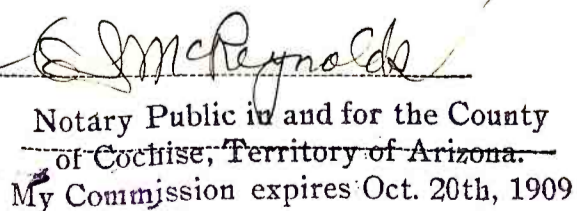 E J McReynolds
Notary Public in and for the County
of Cochise, Territory of Arizona.
My Commission expires Oct. 20th, 1909